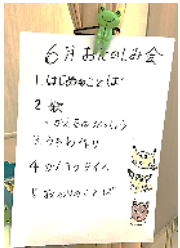 6月おたのしみ会
1.はじめのことば
2 歌
・かえるのがっしょう
3 うちわ作り
4 おやつタイム
5 おわりのことば